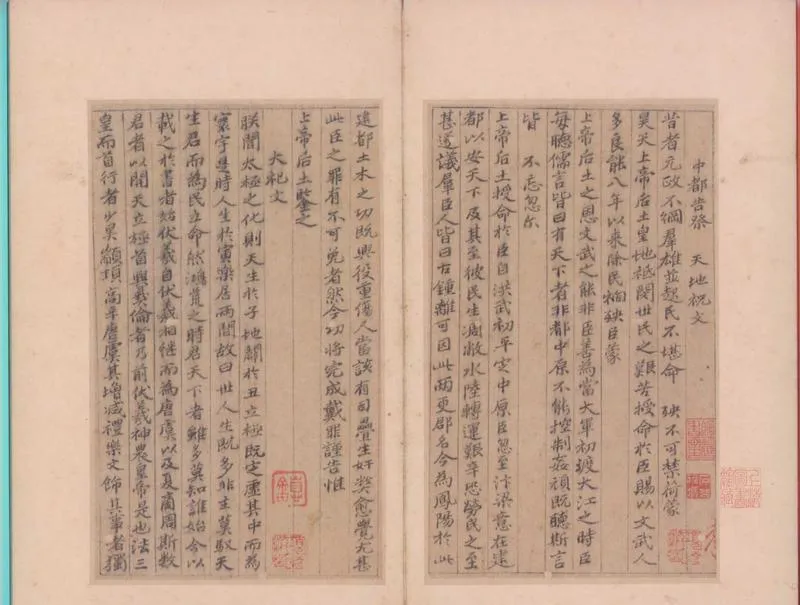 中都告祭 天地祝文
昔者元政不綱羣雄並起民不堪命 殃不可禁荷蒙
昊天上帝后土皇地祇閔世民之艱苦授命於臣賜以文武人
多良能八年以來除民禍殃臣蒙
上帝后土之恩文武之能非臣善為當大軍初渡大江之時臣
每聽儒言皆曰有天下者非都中原不能控制姦頑既聽斯言
皆 不忘忽尔
上帝后土授命於臣自洪武初平定中原臣忽至汴梁意在建
都以安天下及其至彼民生凋敝水陸轉運艱辛恐勞民之至
甚遂議羣臣人皆曰古鍾離可因此兩更郡名今為鳳陽於此
建都土木之功既興役重傷人當該有司疊生奸弊愈覺尤甚
此臣之罪有不可免者然今功將完成戴罪謹告惟
上帝后土鑒之
大祀文
朕聞太極之化則天生於子地闢於丑立極既定虛其中而為
寰宇是時人生於寅樂居兩間故曰世人生既多非主莫馭天
生君而為民立命然鴻荒之時君天下者雖多莫知誰始今以
載之於書者始伏羲自伏羲相繼而為唐虞以及夏商周斯數
君者以開天立極首興彝倫者乃前伏羲神農皇帝是也法三
皇而首行者少昊顓頊高辛唐虞其增減禮樂文飾其事者獨